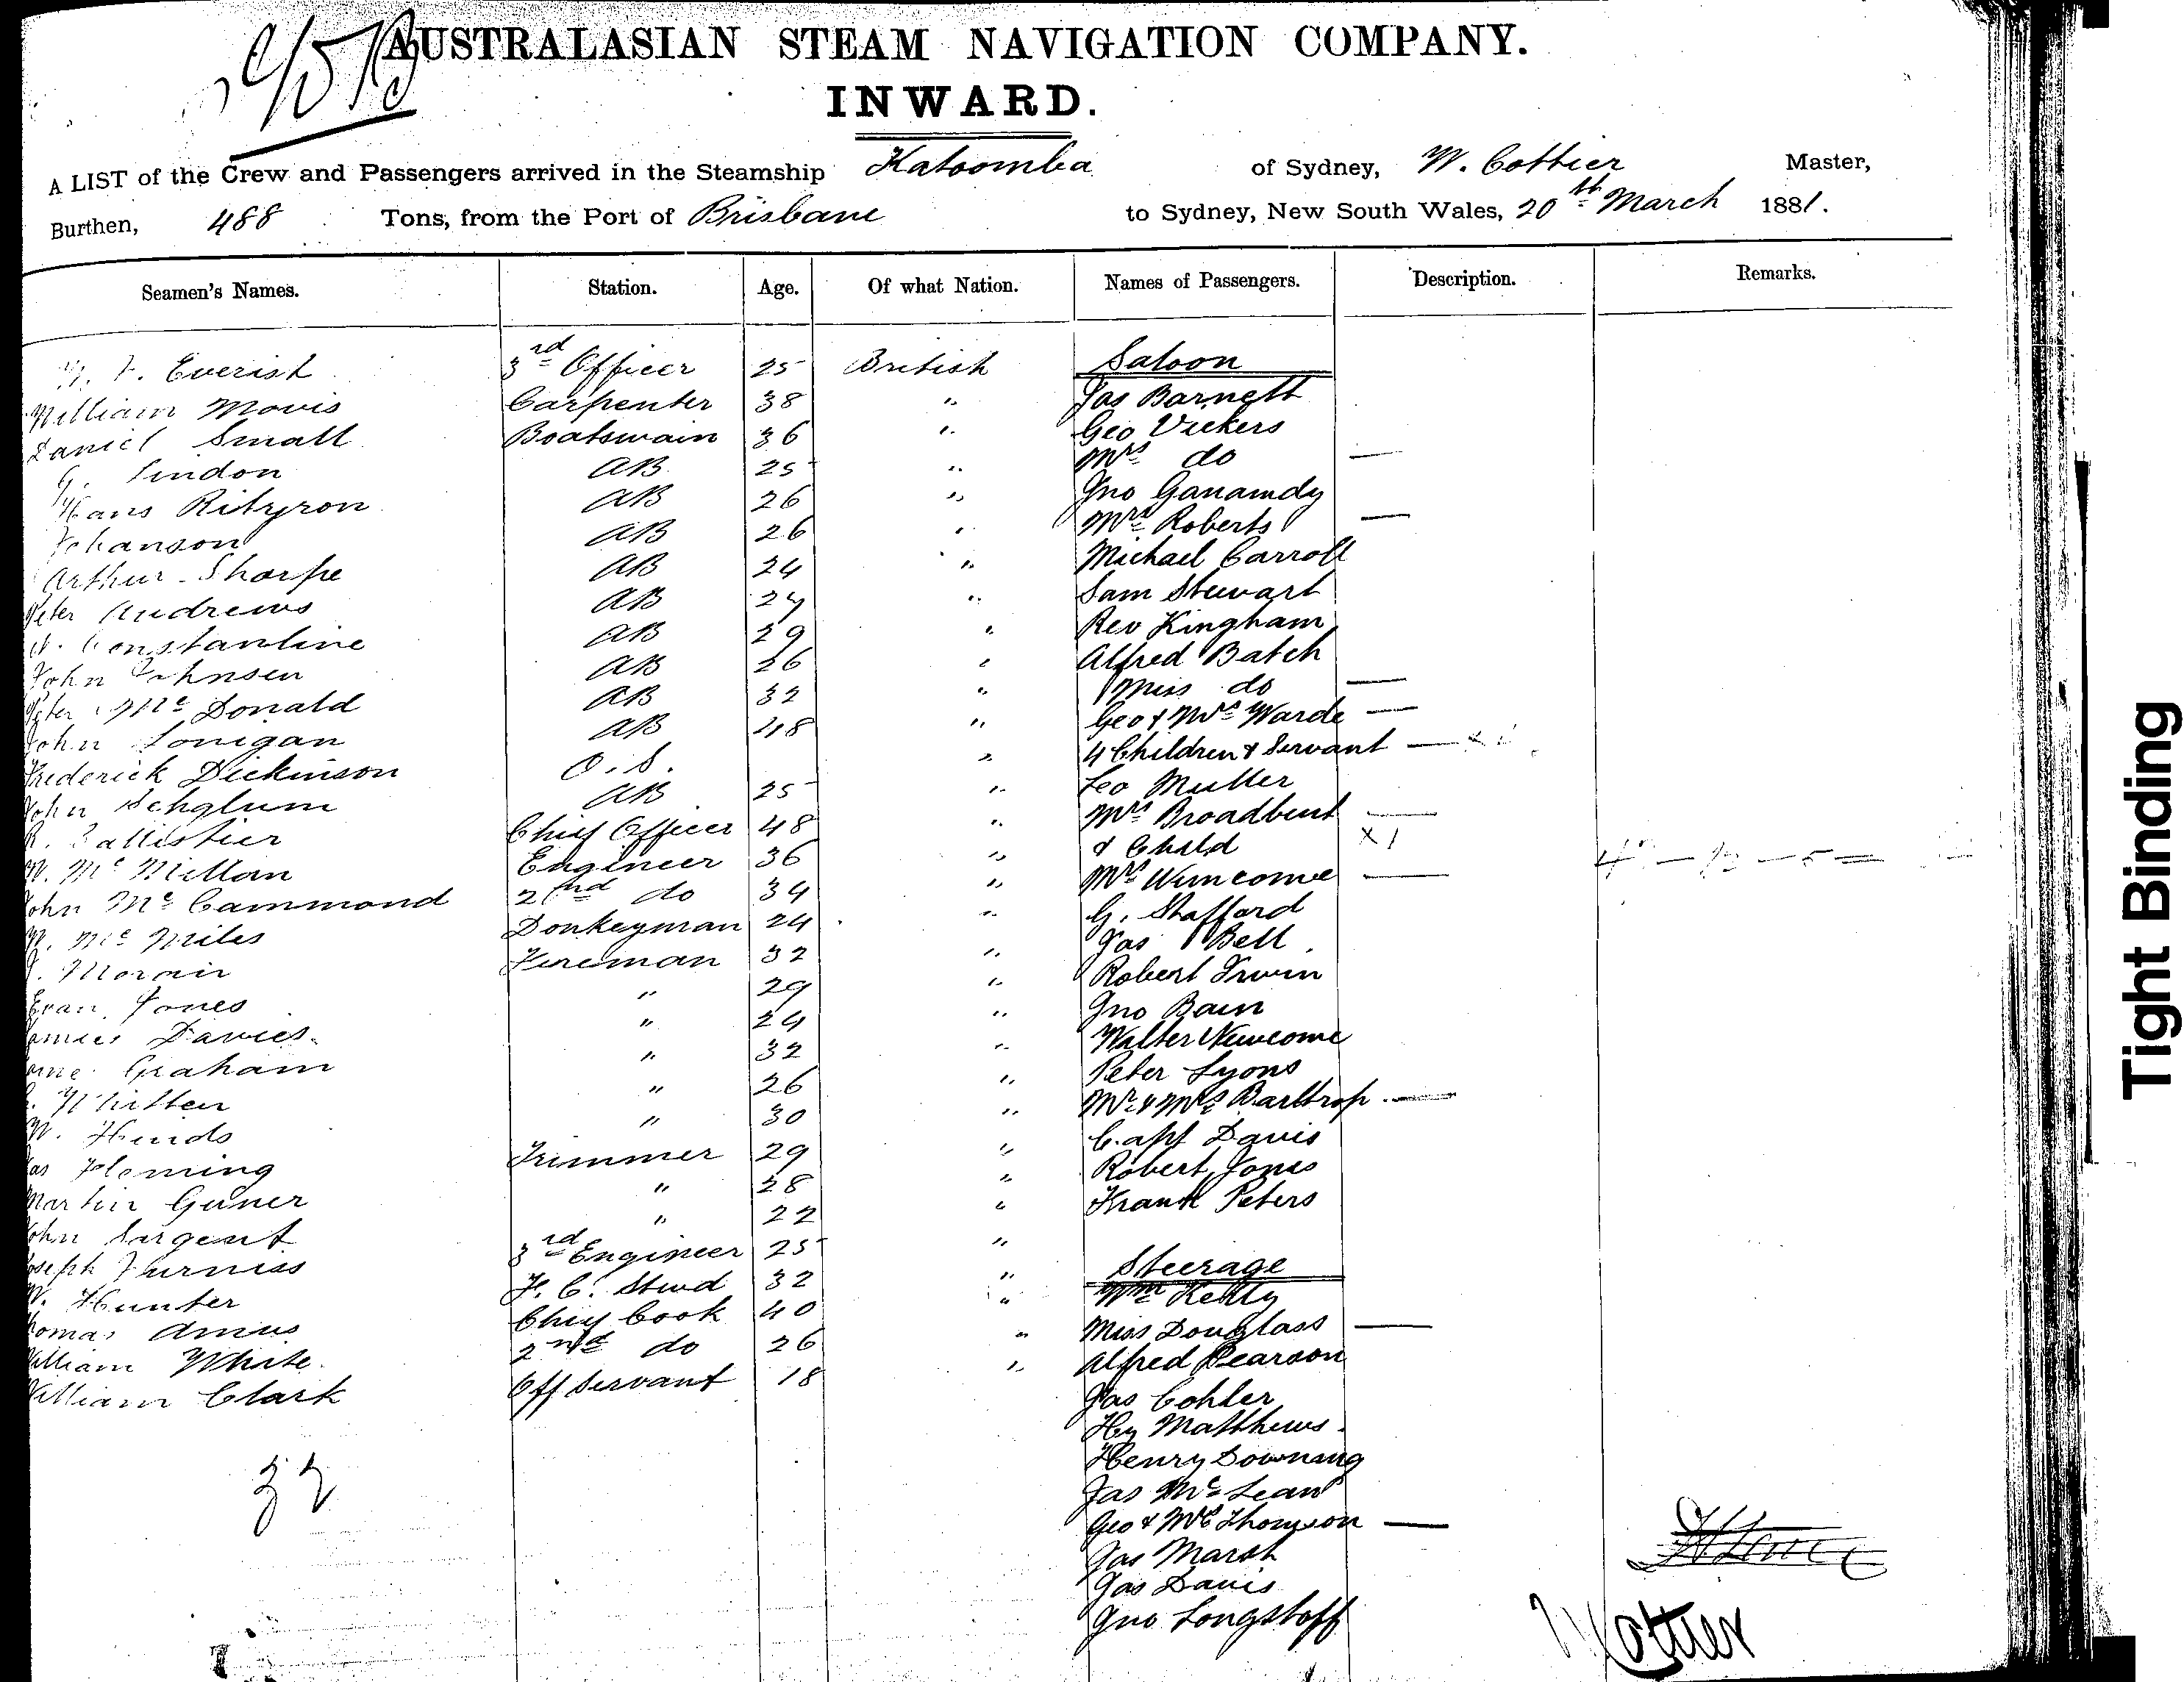 AUSTRALASIAN STEAM NAVIGATION COMPANY.
INWARD.
A LIST of the Crew and Passengers arrived in the Steamship Katoomba of Sydney, W. Cottier Master,
Burthen, 488 Tons, from the Port of Brisbane to Sydney, New South Wales, 20th March 1881.
Seamen's Names. Station. Age. Of what Nation. Names of Passengers. Description. Remarks.
Everist 3rd Officer 25 British Saloon
William Movis Carpenter 38 " Jas Barnett
Daniel Small Boatswain 36 " Geo Vickers
G. Lindon AB 25 " Mrs do —
Hans AB 26 " Jno
Johanson AB 26 " Mrs Roberts —
Arthur Sharpe AB 24 " Michael Carroll
Peter Andrews AB 24 " Sam Stewart
Constantine AB 29 " Rev Kingham
John Johnsen AB 26 " Alfred Batch
Peter McDonald AB 32 " Miss do —
John Lonigan AB 48 " Geo & Mrs Warde —
Frederick Dickinson O.S. " 4 Children & Servant —
John Schglum AB 25 " Leo Muller
R. Callistier Chief Officer 48 " Mrs Broadbent —
W. McMillan Engineer 36 " & Child X 1
John McCammond 2nd do 34 " Mrs —
W. McMiles Donkeyman 24 " G. Stafford
J. Moran Fireman 32 " Jas Bell
Evan Jones " 29 " Robert Irwin
James Davies " 24 " Jno Bain
Graham " 32 " Walter Newcome
Whitten " 26 " Peter Lyons
W. Hinds " 30 " Mr & Mrs Barltrop —
Jas Fleming Trimmer 29 " Capt Davis
Martin Guner " 28 " Robert Jones
John Sargent " 22 " Frank Peters
Joseph Furniss 3rd Engineer 25 " Steerage
W. Hunter F. C. Stwd 32 " Wm Kelly
Thomas Amus Chief Cook 40 " Miss Douglass —
William White 2nd do 26 " Alfred Pearson
William Clark Off Servant 18 " Jas Cohler
Hy Matthews
Henry Downing
Jas McLean
Geo & Mrs Thomson —
Jas Marsh
Jas Davis
Jno Longstaff
32
W Cottier
Tight Binding